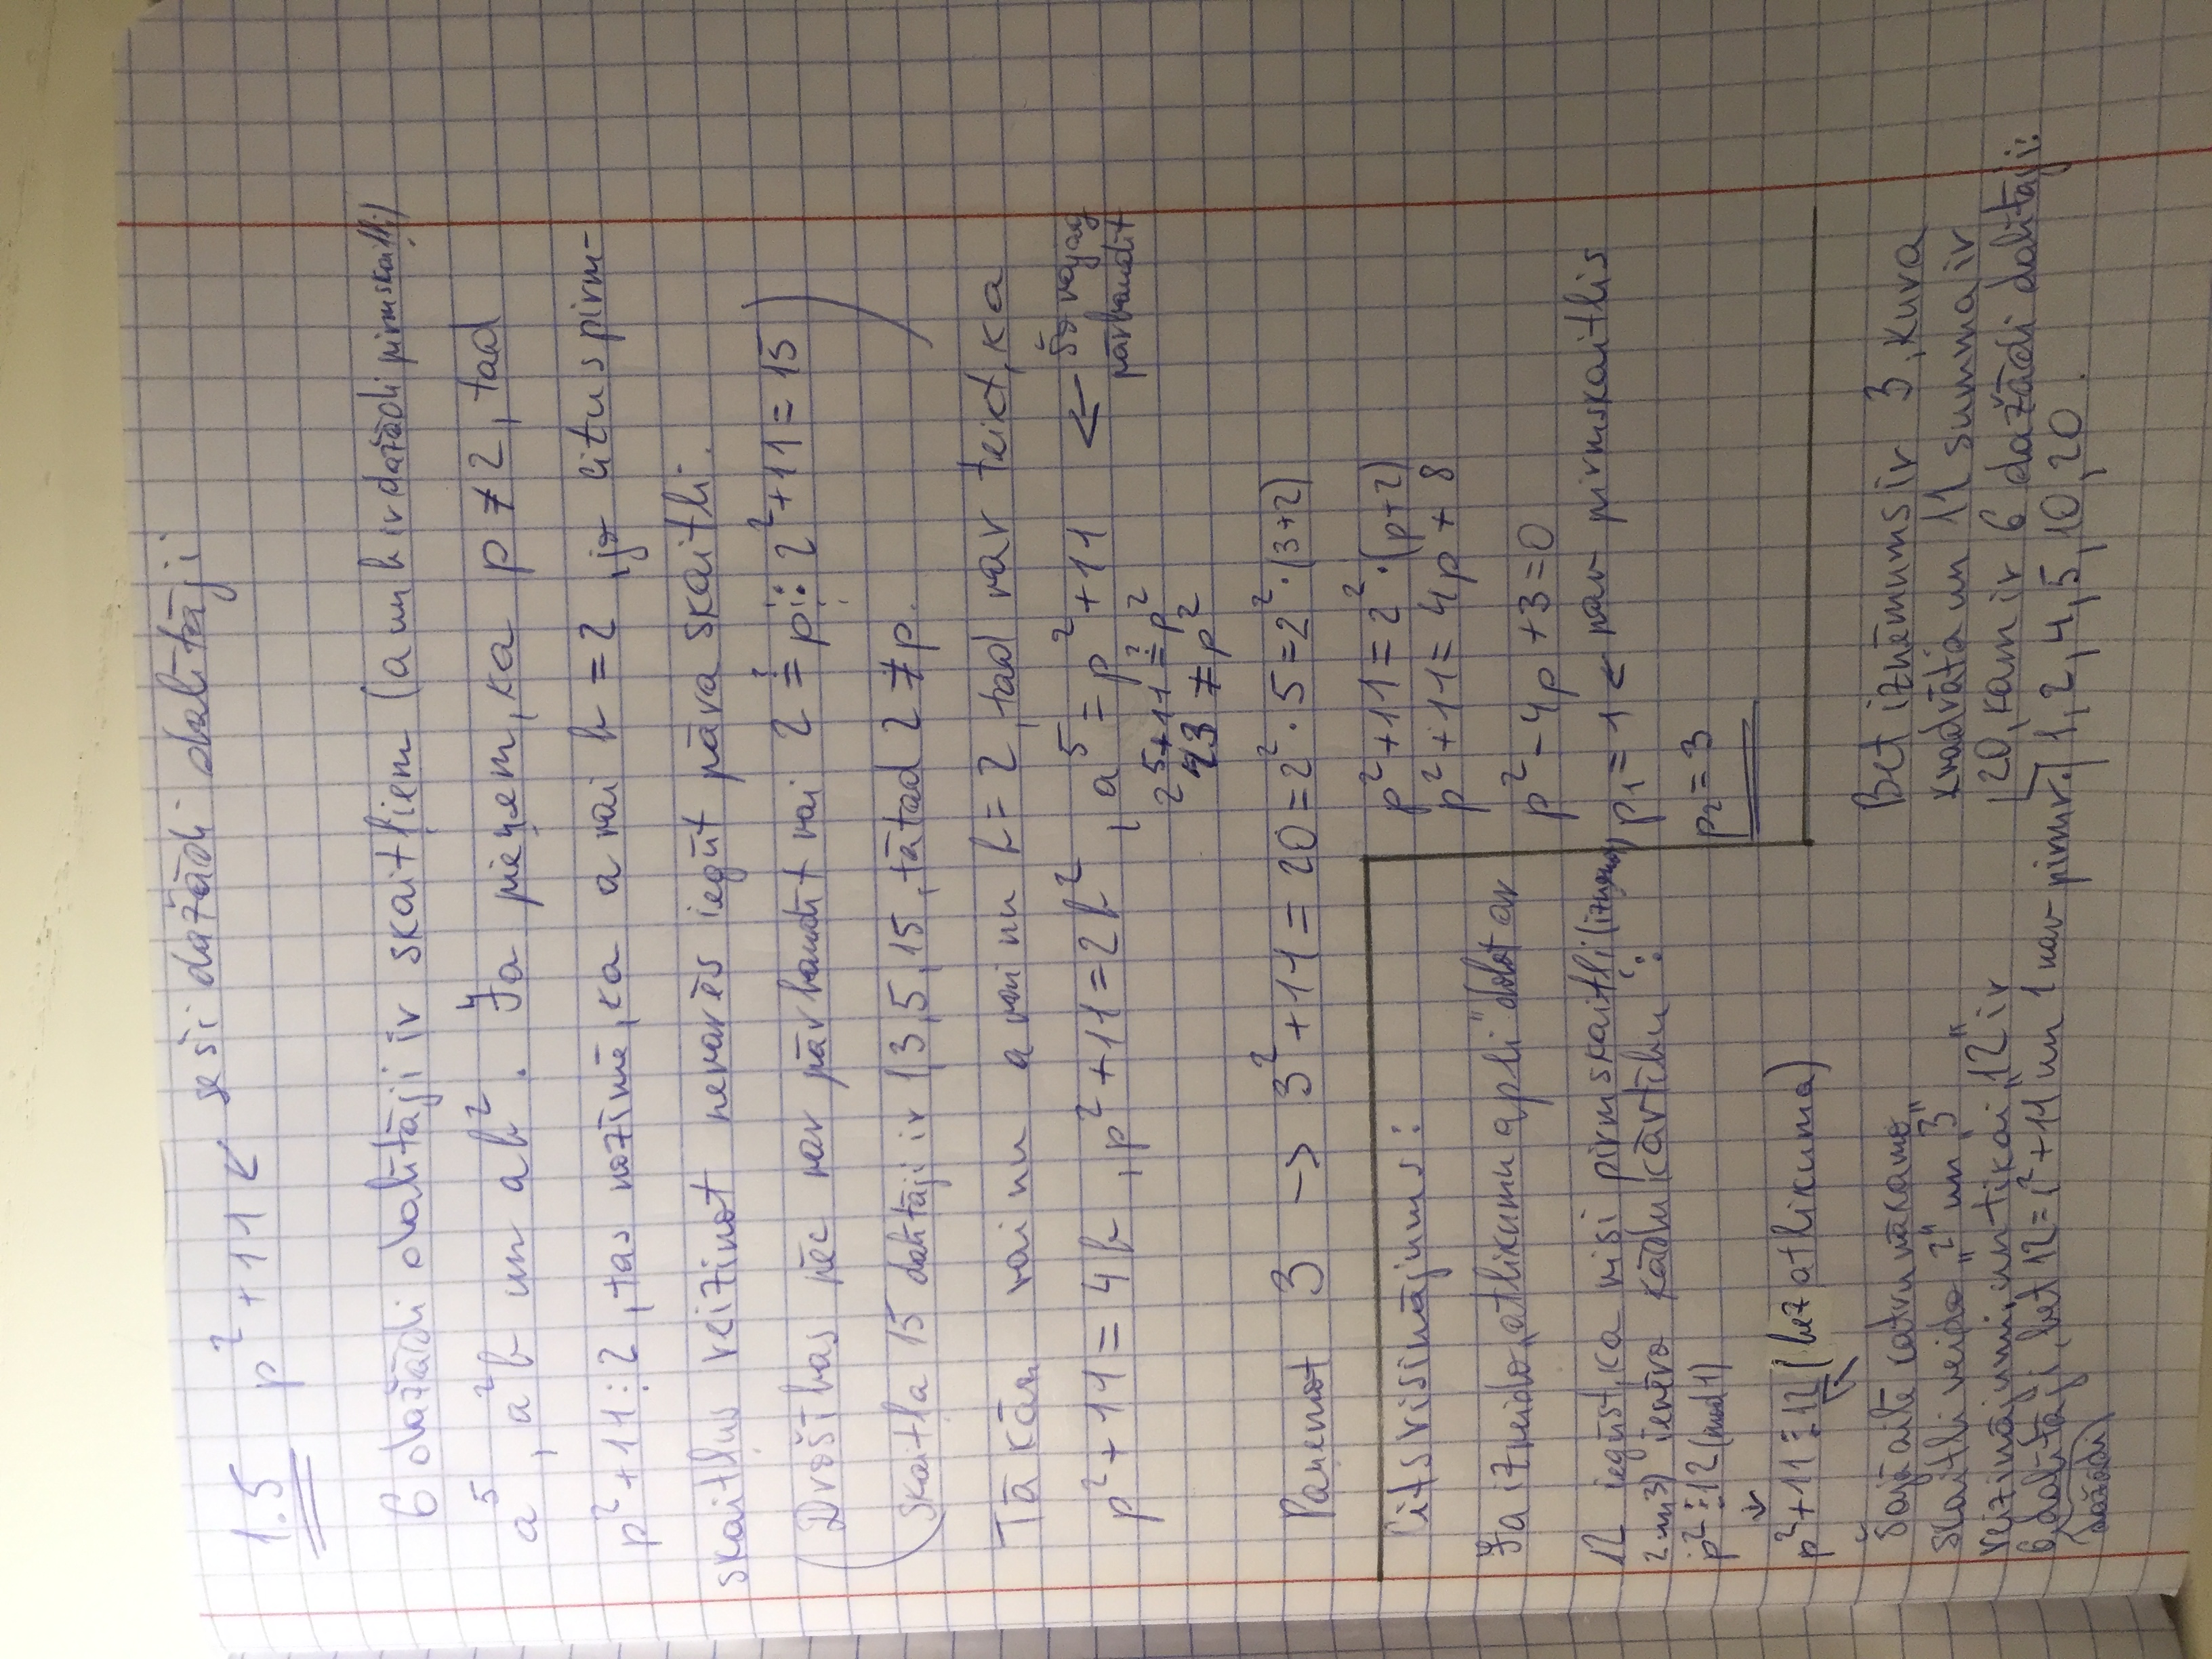 1.5 p²+11 ← seši dažādi dalītāji
6 dažādi dalītāji ir skaitļiem (a un b ir dažādi pirmskaitļi)
a⁵, a²b un ab². Ja pieņem, ka p ≠ 2, tad
p²+11⋮2, tas nozīmē, ka a vai b = 2, jo citus pirm-
skaitļus reizinot nevarēs iegūt pāra skaitli.
(Drošības pēc var pārbaudīt vai 2 ≟ p: 2²+11=15
Skaitļa 15 dalītāji ir 1,3,5,15, tātad 2 ≠ p.)
Tā kā vai nu a vai nu b=2, tad var teikt, ka
p²+11=4b, p²+11=2b², a⁵=p²+11 ← Šo vajag
pārbaudīt
2⁵+11≟p²
43 ≠ p²
Paņemot 3 → 3²+11=20=2²·5=2²·(3+2)
p²+11=2²·(p+2)
p²+11=4p+8
p²-4p+3=0
p₁=1 ← nav pirmskaitlis
p₂=3
Cits risinājums:
Ja izveido „atlikumu apli" dalot ar
12 iegūst, ka visi pirmskaitļi (izņemot
2 un 3) ievēro kādu kārtību:
p²⋮12 (mod 1)
↓
p²+11⋮12 (bez atlikuma)
Šajā katru nākamo
skaitli veido „2" un „3"
reizinājumi, un tikai „12" ir
6 dalītāji, bet 12=1²+11 un 1 nav pirmsk.
(dažādi)
Bet izņēmums ir 3, kura
kvadrāta un 11 summa ir
20, kam ir 6 dažādi dalītāji:
1, 2, 4, 5, 10, 20.